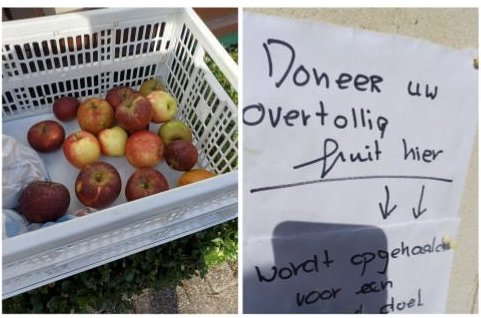 Doneer uw
overtollig
fruit hier
wordt opgehaald
voor een
doel